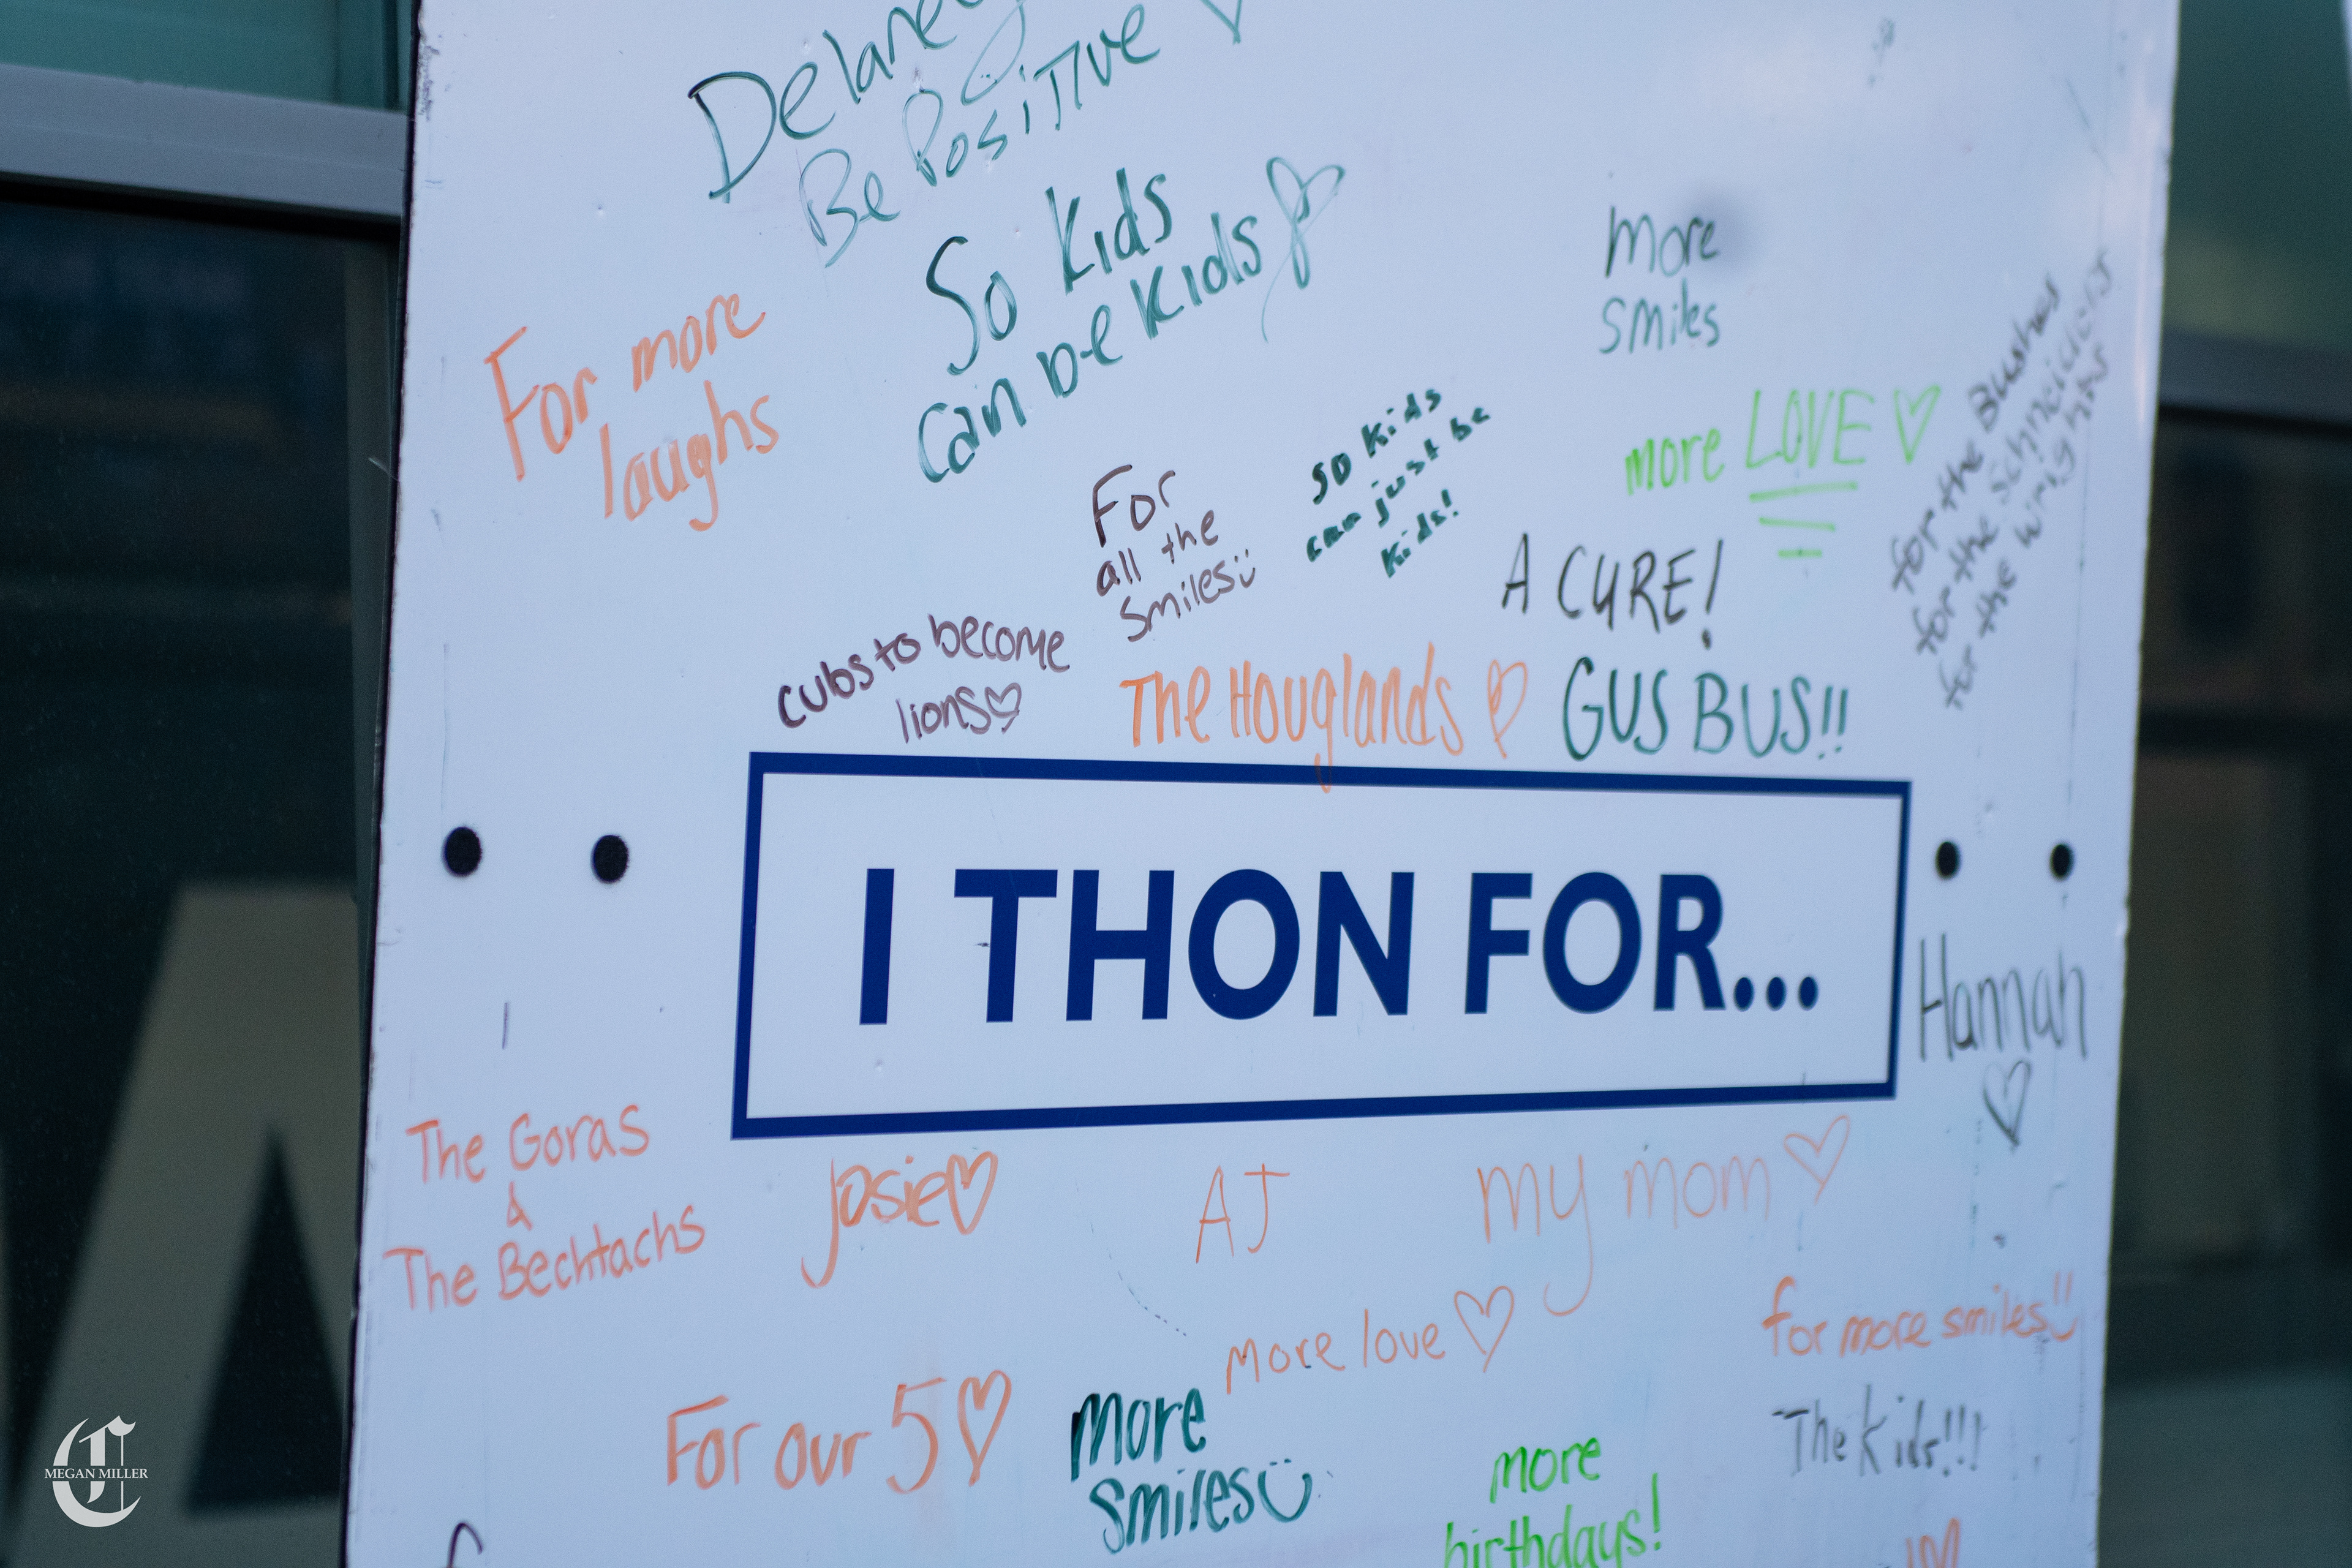 Delaney
Be Positive
So Kids
can be Kids
For more
laughs
more
smiles
so kids
can just be
kids!
more LOVE
for the Bushes
for the Schneiders
for the Wrights
For
all the
smiles
A CURE!
cubs to become
lions
The Houglands
GUS BUS!!
I THON FOR...
Hannah
The Goras
&
The Bechtachs
Josie
AJ
my mom
for more smiles!!
more love
For our 5
more
smiles
The Kids!!!
more
birthdays!
MEGAN MILLER